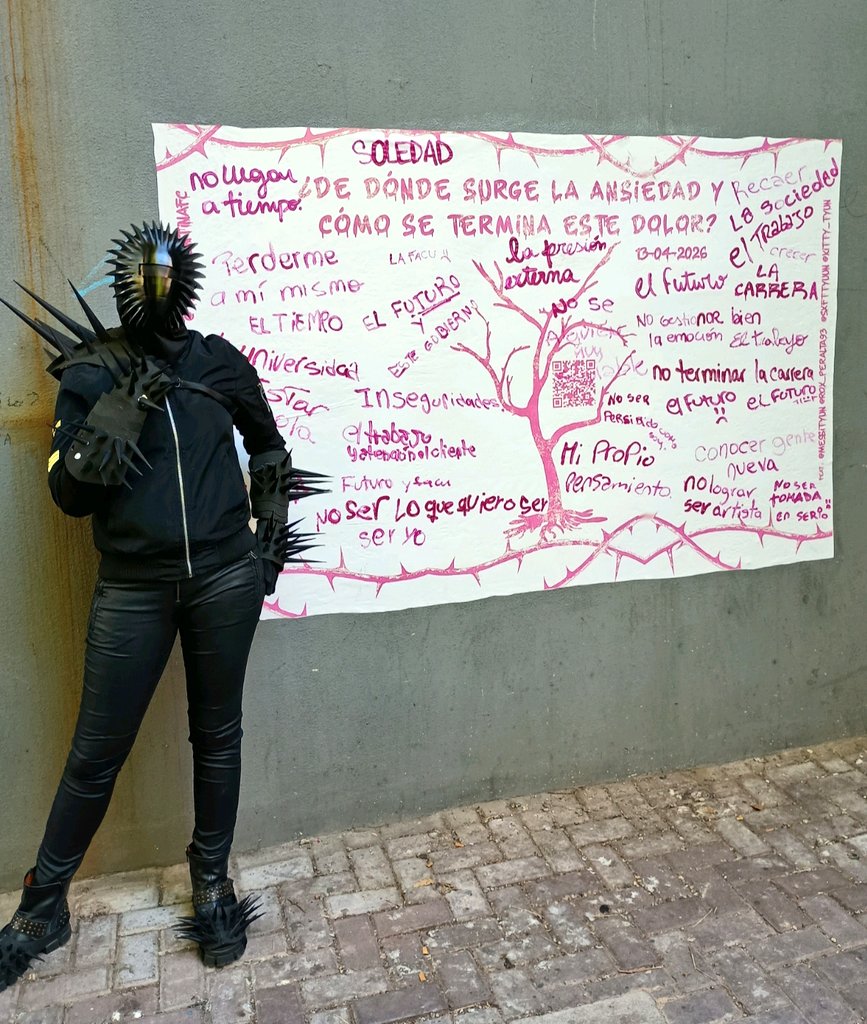 SOLEDAD
¿DE DÓNDE SURGE LA ANSIEDAD Y
CÓMO SE TERMINA ESTE DOLOR?
13-04-2026
no llegar
a tiempo.
Perderme
a mí mismo
LA FACU
EL TIEMPO
EL FUTURO
Y
ESTE GOBIERNO
universidad
Inseguridades
el trabajo
y atención al cliente
Futuro y facu
NO SER LO QUE QUIERO SER
ser yo
la presión
externa
NO se
Recaer
LA sociedad
el TRABAJO
crecer
el futuro
LA
CARRERA
NO GestioNAR bien
la emoción
El trabajo
no terminar la carrera
el FUTURO
el FUTURO
NO SER
Mi Propio
Pensamiento
conocer gente
nueva
no lograr
ser artista
NO SER
TOMADA
EN SERIO
FEAT. @MESSITYUN @ROX_PERALTA93 @SKETTTYUUN @KITTY_TYUN